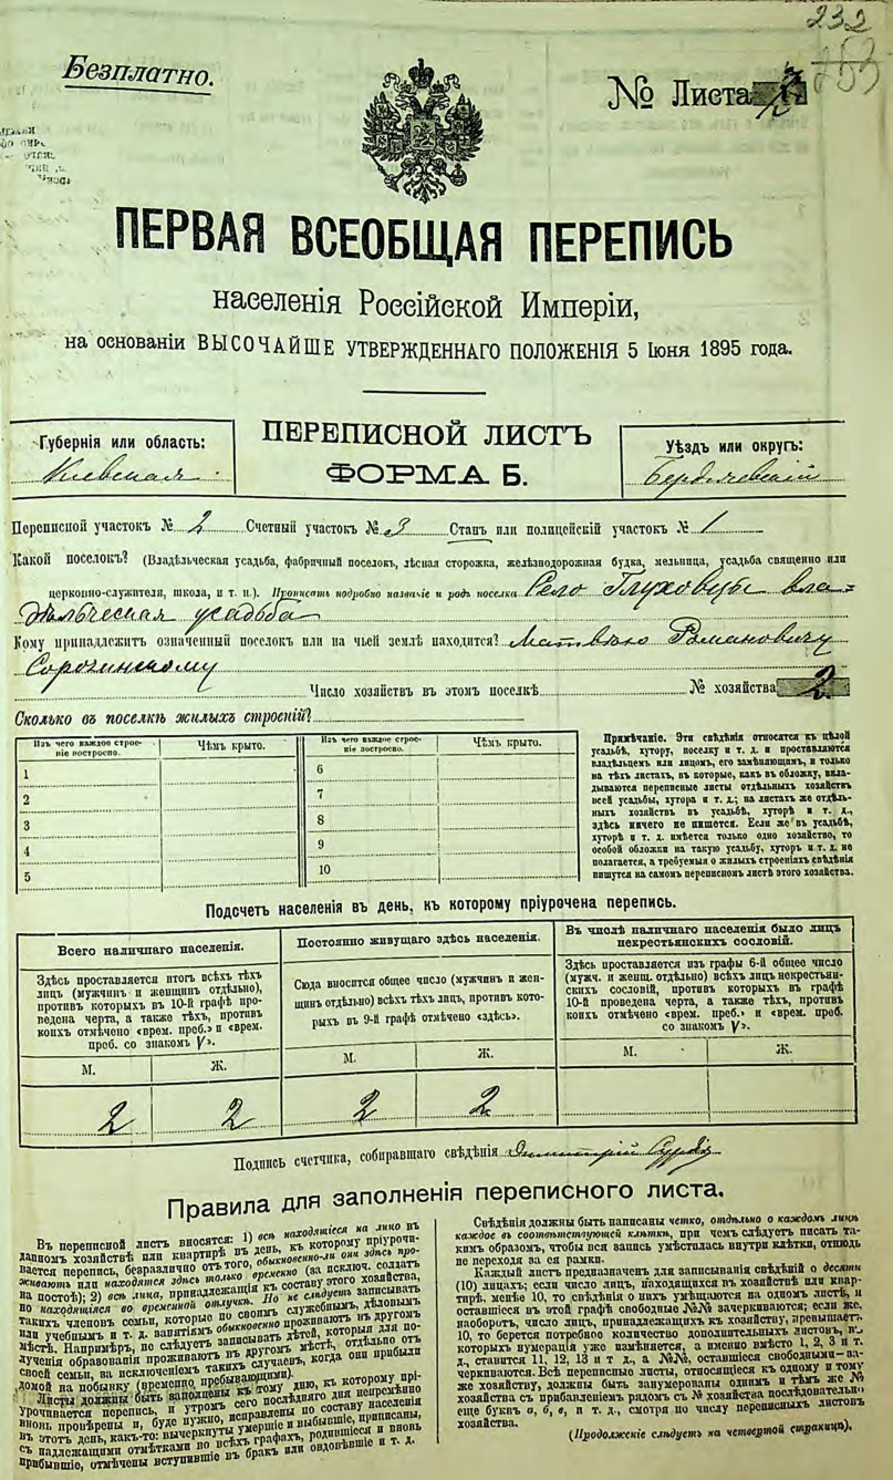 232
Безплатно.
№ Листа 2
ПЕРВАЯ ВСЕОБЩАЯ ПЕРЕПИСЬ
населенія Россійской Имперіи,
на основаніи ВЫСОЧАЙШЕ УТВЕРЖДЕННАГО ПОЛОЖЕНІЯ 5 Іюня 1895 года.
ПЕРЕПИСНОЙ ЛИСТЪ
ФОРМА Б.
Губернія или область:
Кіевская
Уѣздъ или округъ:
Бердичевскій
Переписной участокъ № 2 Счетный участокъ № 3 Станъ или полицейскій участокъ № 1
Какой поселокъ? (Владѣльческая усадьба, фабричный поселокъ, лѣсная сторожка, желѣзнодорожная будка, мельница, усадьба священно или
церковно-служителя, школа, и т. п.). Прописать подробно названіе и родъ поселка Село Глуховцы вла=
дѣльческая усадьба
Кому принадлежитъ означенный поселокъ или на чьей землѣ находится? Матвѣю Романовичу
Сорочинскому
Число хозяйствъ въ этомъ поселкѣ № хозяйства 2
Сколько въ поселкѣ жилыхъ строеній?
Изъ чего каждое строе-
ніе построено.
Чѣмъ крыто.
Изъ чего каждое строе-
ніе построено.
Чѣмъ крыто.
1
2
3
4
5
6
7
8
9
10
Примѣчаніе. Эти свѣдѣнія относятся къ цѣлой
усадьбѣ, хутору, поселку и т. д. и проставляются
владѣльцемъ или лицомъ, его замѣняющимъ, и только
на тѣхъ листахъ, въ которые, какъ въ обложку, вкла-
дываются переписные листы отдѣльныхъ хозяйствъ
всей усадьбы, хутора и т. д.; на листахъ же отдѣль-
ныхъ хозяйствъ въ усадьбѣ, хуторѣ и т. д.,
здѣсь ничего не пишется. Если же въ усадьбѣ,
хуторѣ и т. д. имѣется только одно хозяйство, то
особой обложки на такую усадьбу, хуторъ и т. д. не
полагается, а требуемыя о жилыхъ строеніяхъ свѣдѣнія
пишутся на самомъ переписномъ листѣ этого хозяйства.
Подсчетъ населенія въ день, къ которому пріурочена перепись.
Всего наличнаго населенія.
Здѣсь проставляется итогъ всѣхъ тѣхъ
лицъ (мужчинъ и женщинъ отдѣльно),
противъ которыхъ въ 10-й графѣ про-
ведена черта, а также тѣхъ, противъ
коихъ отмѣчено «врем. преб.» и «врем.
преб. со знакомъ V».
М. Ж.
2 2
Постоянно живущаго здѣсь населенія.
Сюда вносится общее число (мужчинъ и жен-
щинъ отдѣльно) всѣхъ тѣхъ лицъ, противъ кото-
рыхъ въ 9-й графѣ отмѣчено «здѣсь».
М. Ж.
2 2
Въ числѣ наличнаго населенія было лицъ
некрестьянскихъ сословій.
Здѣсь проставляется изъ графы 6-й общее число
(мужч. и женщ. отдѣльно) всѣхъ лицъ некрестьян-
скихъ сословій, противъ которыхъ въ графѣ
10-й проведена черта, а также тѣхъ, противъ
коихъ отмѣчено «врем. преб.» и «врем. преб.
со знакомъ V».
М. Ж.
Подпись счетчика, собиравшаго свѣдѣнія Димитрій
Правила для заполненія переписного листа.
Въ переписной листъ вносятся: 1) всѣ находящіеся на лицо въ
данномъ хозяйствѣ или квартирѣ въ день, къ которому пріурочи-
вается перепись, безразлично отъ того, обыкновенно-ли они здѣсь про-
живаютъ или находятся здѣсь только временно (за исключ. солдатъ
на постоѣ); 2) всѣ лица, принадлежащія къ составу этого хозяйства,
но находящіяся во временной отлучкѣ. Но не слѣдуетъ записывать
такихъ членовъ семьи, которые по своимъ служебнымъ, дѣловымъ
или учебнымъ и т. д. занятіямъ обыкновенно проживаютъ въ другомъ
мѣстѣ. Напримѣръ, не слѣдуетъ записывать дѣтей, которыя для по-
лученія образованія проживаютъ въ другомъ мѣстѣ, отдѣльно отъ
своей семьи, за исключеніемъ такихъ случаевъ, когда они прибыли
домой на побывку (временно пребывающими).
Листы должны быть заполнены къ тому дню, къ которому прі-
урочивается перепись, и утромъ сего послѣдняго дня непремѣнно
вновь провѣрены и, буде нужно, исправлены по составу населенія
въ этотъ день, какъ-то: вычеркнуты умершіе и выбывшіе, приписаны,
съ надлежащими отмѣтками во всѣхъ графахъ, родившіеся и вновь
прибывшіе, отмѣчены вступившіе въ бракъ или овдовѣвшіе и т. д.
Свѣдѣнія должны быть написаны четко, отдѣльно о каждомъ лицѣ
каждое въ соотвѣтствующей клѣткѣ, при чемъ слѣдуетъ писать та-
кимъ образомъ, чтобы вся запись умѣстилась внутри клѣтки, отнюдь
не переходя за ея рамки.
Каждый листъ предназначенъ для записыванія свѣдѣній о десяти
(10) лицахъ; если число лицъ, находящихся въ хозяйствѣ или квар-
тирѣ, менѣе 10, то свѣдѣнія о нихъ умѣщаются на одномъ листѣ, и
оставшіеся въ этой графѣ свободные №№ зачеркиваются; если же,
наоборотъ, число лицъ, принадлежащихъ къ хозяйству, превышаетъ
10, то берется потребное количество дополнительныхъ листовъ, въ
которыхъ нумерація уже измѣняется, а именно вмѣсто 1, 2, 3 и т.
д., ставится 11, 12, 13 и т. д., а №№, оставшіеся свободными—за-
черкиваются. Всѣ переписные листы, относящіеся къ одному и тому
же хозяйству, должны быть занумерованы однимъ и тѣмъ же №
хозяйства съ прибавленіемъ рядомъ съ № хозяйства послѣдовательно
еще буквъ а, б, в, и т. д., смотря по числу переписныхъ листовъ
хозяйства.
(Продолженіе слѣдуетъ на четвертой страницѣ).